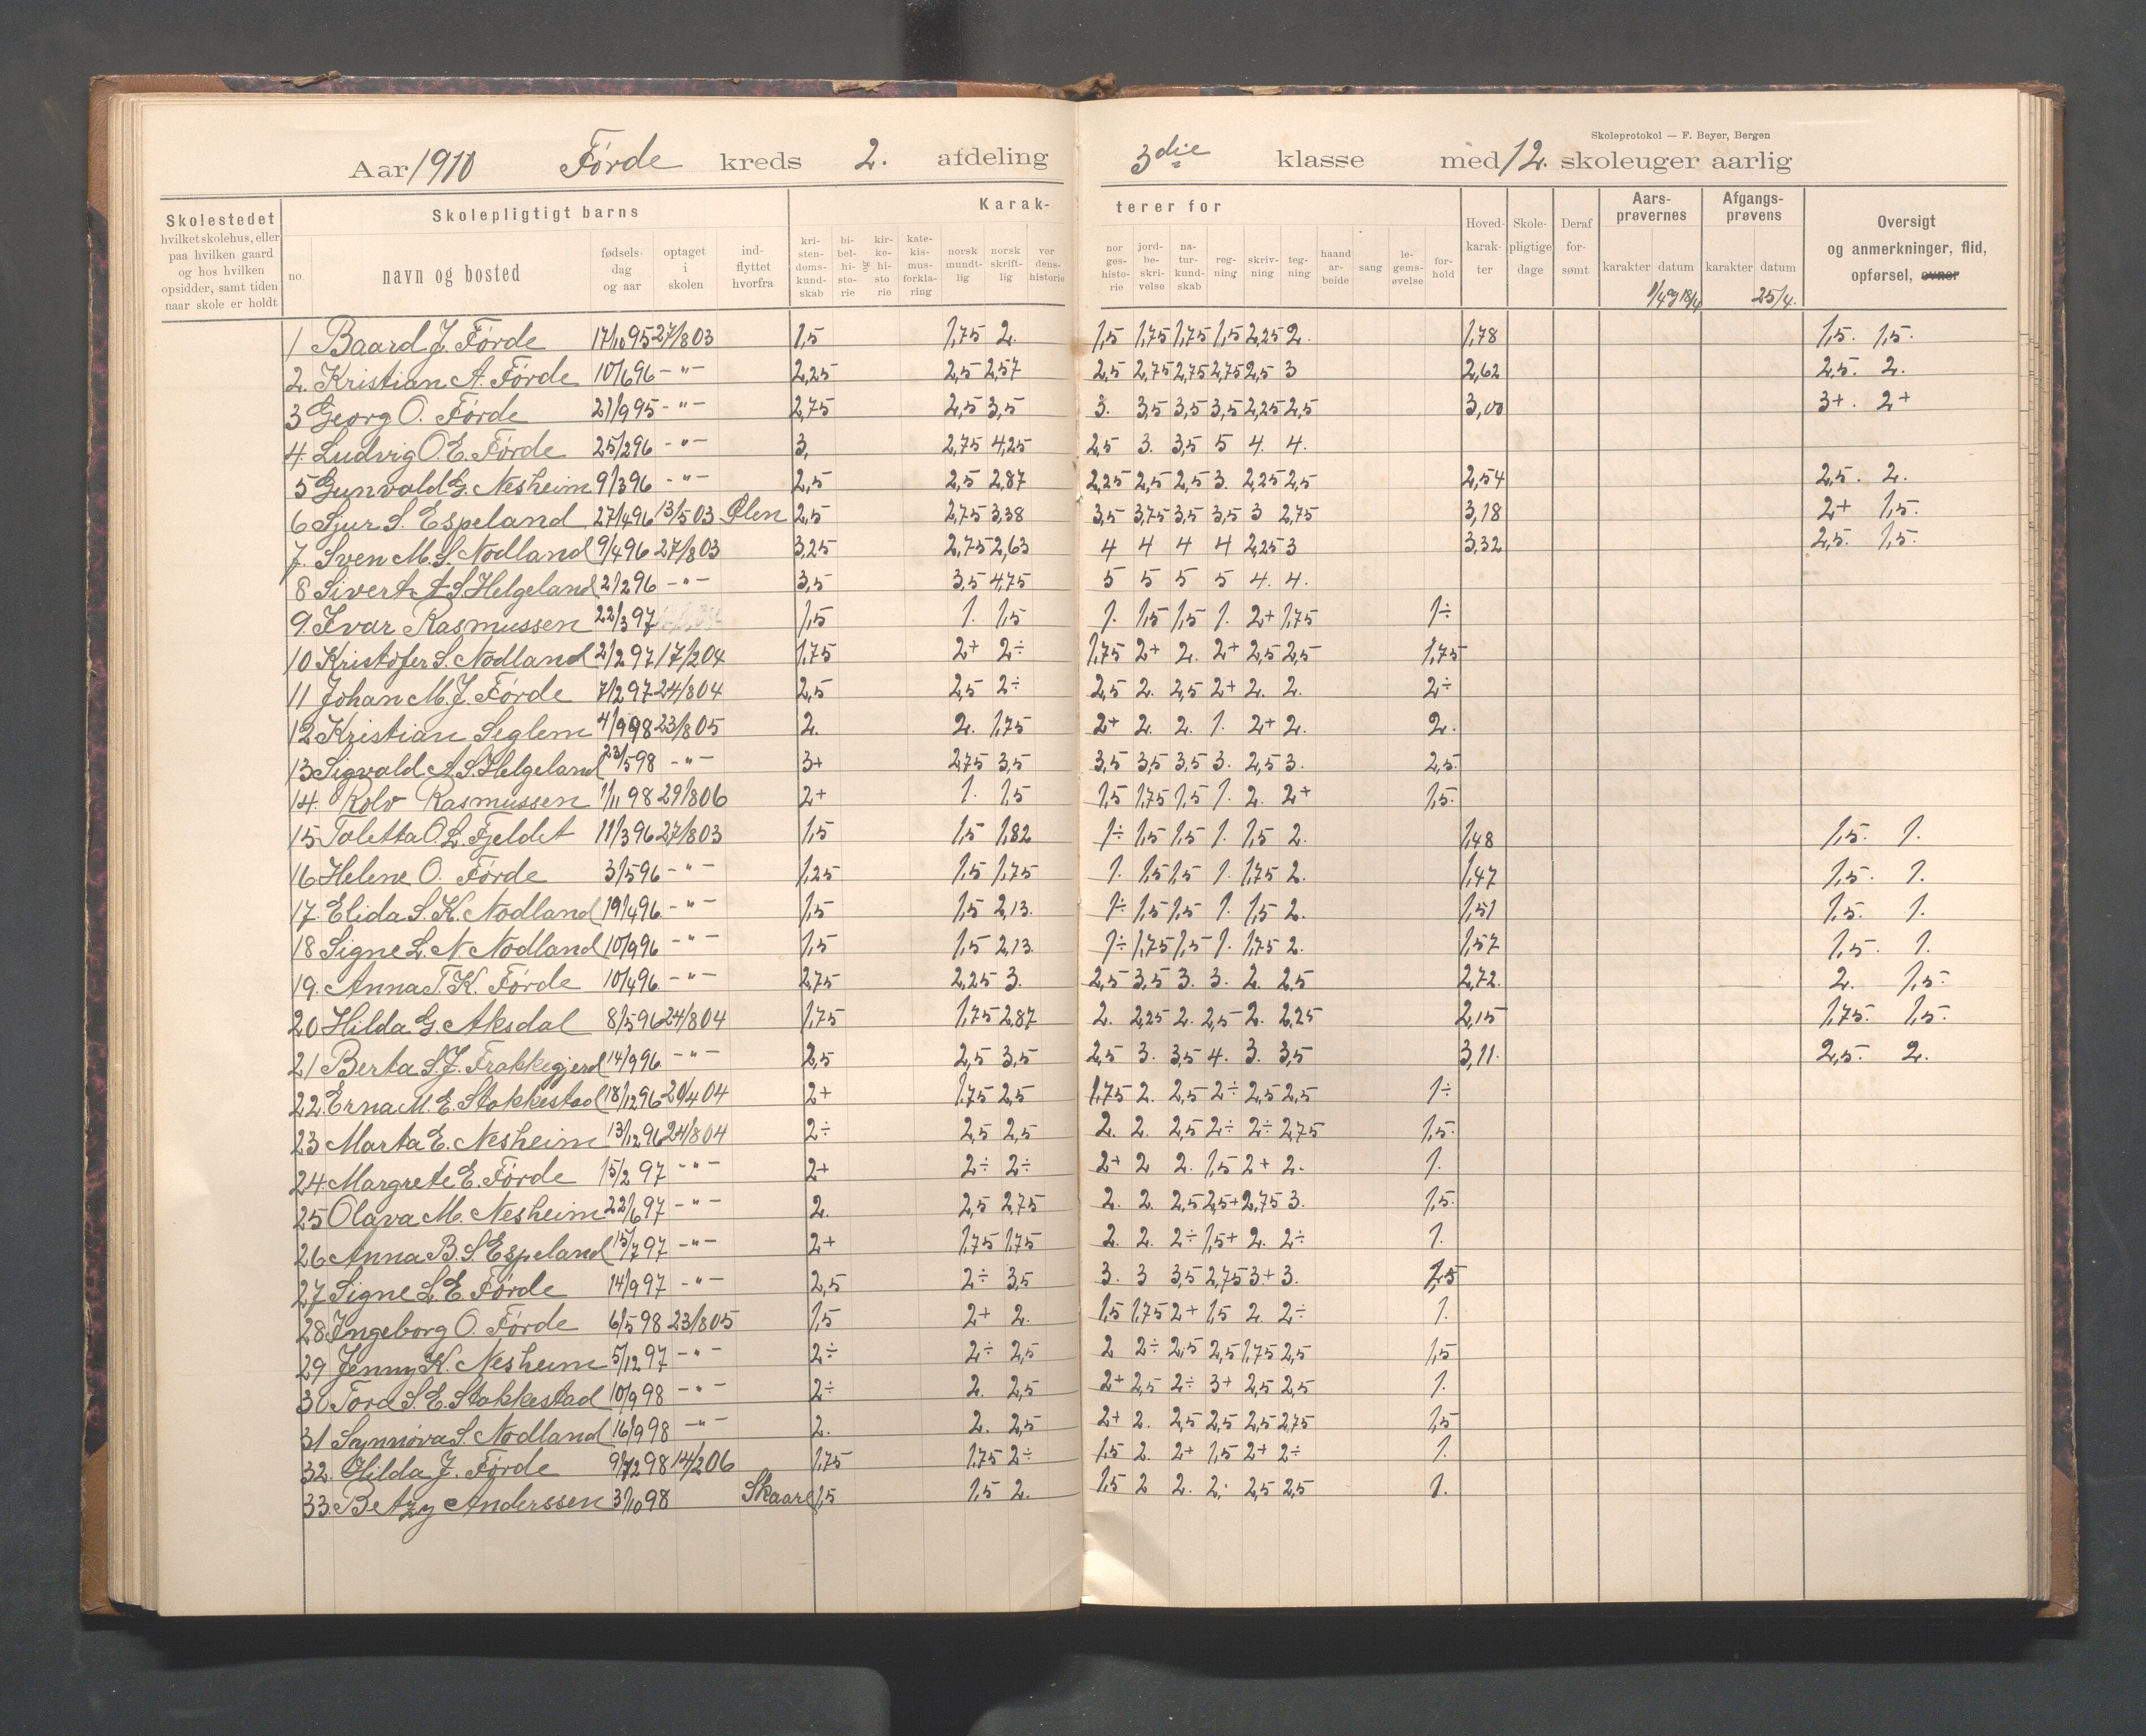 Skoleprotokol — F. Beyer, Bergen
Aar 1910 Förde kreds 2. afdeling 3die klasse med 12. skoleuger aarlig
Skolestedet hvilket skolehus, eller paa hvilken gaard og hos hvilken opsidder, samt tiden naar skole er holdt
Skolepligtigt barns
no. navn og bosted fødselsdag og aar optaget i skolen indflyttet hvorfra
Karakterer for
kristendomskundskab bibelhistorie kirkehistorie katekismusforklaring norsk mundtlig norsk skriftlig verdenshistorie norgeshistorie jordbeskrivelse naturkundskab regning skrivning tegning haandarbeide sang legemsøvelse forhold
Hovedkarakter Skolepligtige dage Deraf forsømt
Aarsprøvernes karakter datum
Afgangsprøvens karakter datum 25/4.
Oversigt og anmerkninger, flid, opførsel, evner
1 Baard J. Förde 17/10 95 27/8 03 1,5 1,75 2. 1,5 1,75 1,75 1,5 2,25 2. 1,78 1,5. 1,5.
2. Kristian A. Förde 10/6 96 -"- 2,25 2,5 2,57 2,5 2,75 2,75 2,75 2,5 3 2,62 2,5. 2.
3 Georg O. Förde 21/9 95 -"- 2,75 2,5 3,5 3. 3,5 3,5 3,5 2,25 2,5 3,00 3+. 2+
4. Ludvig O.E. Förde 25/2 96 -"- 3, 2,75 4,25 2,5 3. 3,5 5 4. 4.
5 Gunvald G. Nesheim 9/3 96 -"- 2,5 2,5 2,87 2,25 2,5 2,5 3. 2,25 2,5 2,54 2,5. 2.
6 Sjur S. Espeland 27/4 96 13/5 03 Ølen 2,5 2,75 3,38 3,5 3,75 3,5 3,5 3 2,75 3,18 2+ 1,5.
7. Sven M.S. Nodland 9/4 96 27/8 03 3,25 2,75 2,63 4 4 4 4 2,25 3 3,32 2,5. 1,5.
8 Sivert A.S. Helgeland 2/2 96 -"- 3,5 3,5 4,75 5 5 5 5 4. 4.
9. Ivar Rasmussen 22/3 97 1,5 1. 1,5 1. 1,5 1,5 1. 2+ 1,75 1÷
10 Kristofer S. Nodland 2/2 97 17/2 04 1,75 2+ 2÷ 1,75 2+ 2. 2+ 2,5 2,5 1,75
11 Johan M.J. Förde 7/2 97 24/8 04 2,5 2,5 2÷ 2,5 2. 2,5 2+ 2. 2. 2÷
12 Kristian Seglem 4/9 98 23/8 05 2. 2. 1,75 2+ 2. 2. 1. 2+ 2. 2.
13 Sigvald A.S. Helgeland 23/5 98 -"- 3+ 2,75 3,5 3,5 3,5 3,5 3. 2,5 3. 2,5.
14. Rolv Rasmussen 1/11 98 29/8 06 2+ 1. 1,5 1,5 1,75 1,5 1. 2. 2+ 1,5.
15. Taletta O.L. Fjeldet 11/3 96 27/8 03 1,5 1,5 1,82 1÷ 1,5 1,5 1. 1,5 2. 1,48 1,5. 1.
16 Helene O. Förde 3/5 96 -"- 1,25 1,5 1,75 1. 1,5 1,5 1. 1,75 2. 1,47 1,5. 1.
17. Elida S.K. Nodland 19/4 96 -"- 1,5 1,5 2,13. 1÷ 1,5 1,5 1. 1,5 2. 1,51 1,5. 1.
18 Signe L.N. Nodland 10/9 96 -"- 1,5 1,5 2,13. 1÷ 1,75 1,5 1. 1,75 2. 1,57 1,5. 1.
19. Anna T.K. Förde 10/4 96 -"- 2,75 2,25 3. 2,5 3,5 3. 3. 2. 2,5 2,72. 2. 1,5.
20 Hilda G. Aksdal 8/5 96 24/8 04 1,75 1,75 2,87 2. 2,25 2. 2,5 2. 2,25 2,15 1,75. 1,5.
21 Berta S.J. Frakkegjerd 14/9 96 -"- 2,5 2,5 3,5 2,5 3. 3,5 4. 3. 3,5 3,11. 2,5. 2.
22. Erna M.E. Stakkestad 18/12 96 20/4 04 2+ 1,75 2,5 1,75 2. 2,5 2÷ 2,5 2,5 1÷
23 Marta E. Nesheim 13/12 96 24/8 04 2÷ 2,5 2,5 2. 2. 2,5 2÷ 2÷ 2,75 1,5.
24. Margrete E. Förde 15/2 97 -"- 2+ 2÷ 2÷ 2+ 2 2. 1,5 2+ 2. 1.
25 Olava M. Nesheim 22/6 97 -"- 2. 2,5 2,75 2. 2. 2,5 2,5+ 2,75 3. 1,5.
26 Anna B.S. Espeland 15/7 97 -"- 2+ 1,75 1,75 2. 2. 2÷ 1,5+ 2. 2÷ 1.
27 Signe L.E. Förde 14/9 97 -"- 2,5 2÷ 3,5 3. 3 3,5 2,75 3+ 3.
28 Ingeborg O. Förde 6/5 98 23/8 05 1,5 2+ 2. 1,5 1,75 2+ 1,5 2. 2÷ 1.
29 Jenny K. Nesheim 5/12 97 -"- 2÷ 2÷ 2,5 2 2÷ 2,5 2,5 1,75 2,5 1,5
30 Tora S.E. Stakkestad 10/9 98 -"- 2÷ 2. 2,5 2+ 2,5 2÷ 3+ 2,5 2,5 1.
31 Synnøva S. Nodland 16/9 98 -"- 2. 2. 2,5 2+ 2. 2,5 2,5 2,5 2,75 1,5
32. Hilda J. Förde 9/12 98 14/2 06 1,75 1,75 2÷ 1,5 2. 2+ 1,5 2+ 2÷ 1.
33. Betzy Anderssen 3/10 98 Skaare 1,5 1,5 2. 1,5 2 2. 2. 2,5 2,5 1.